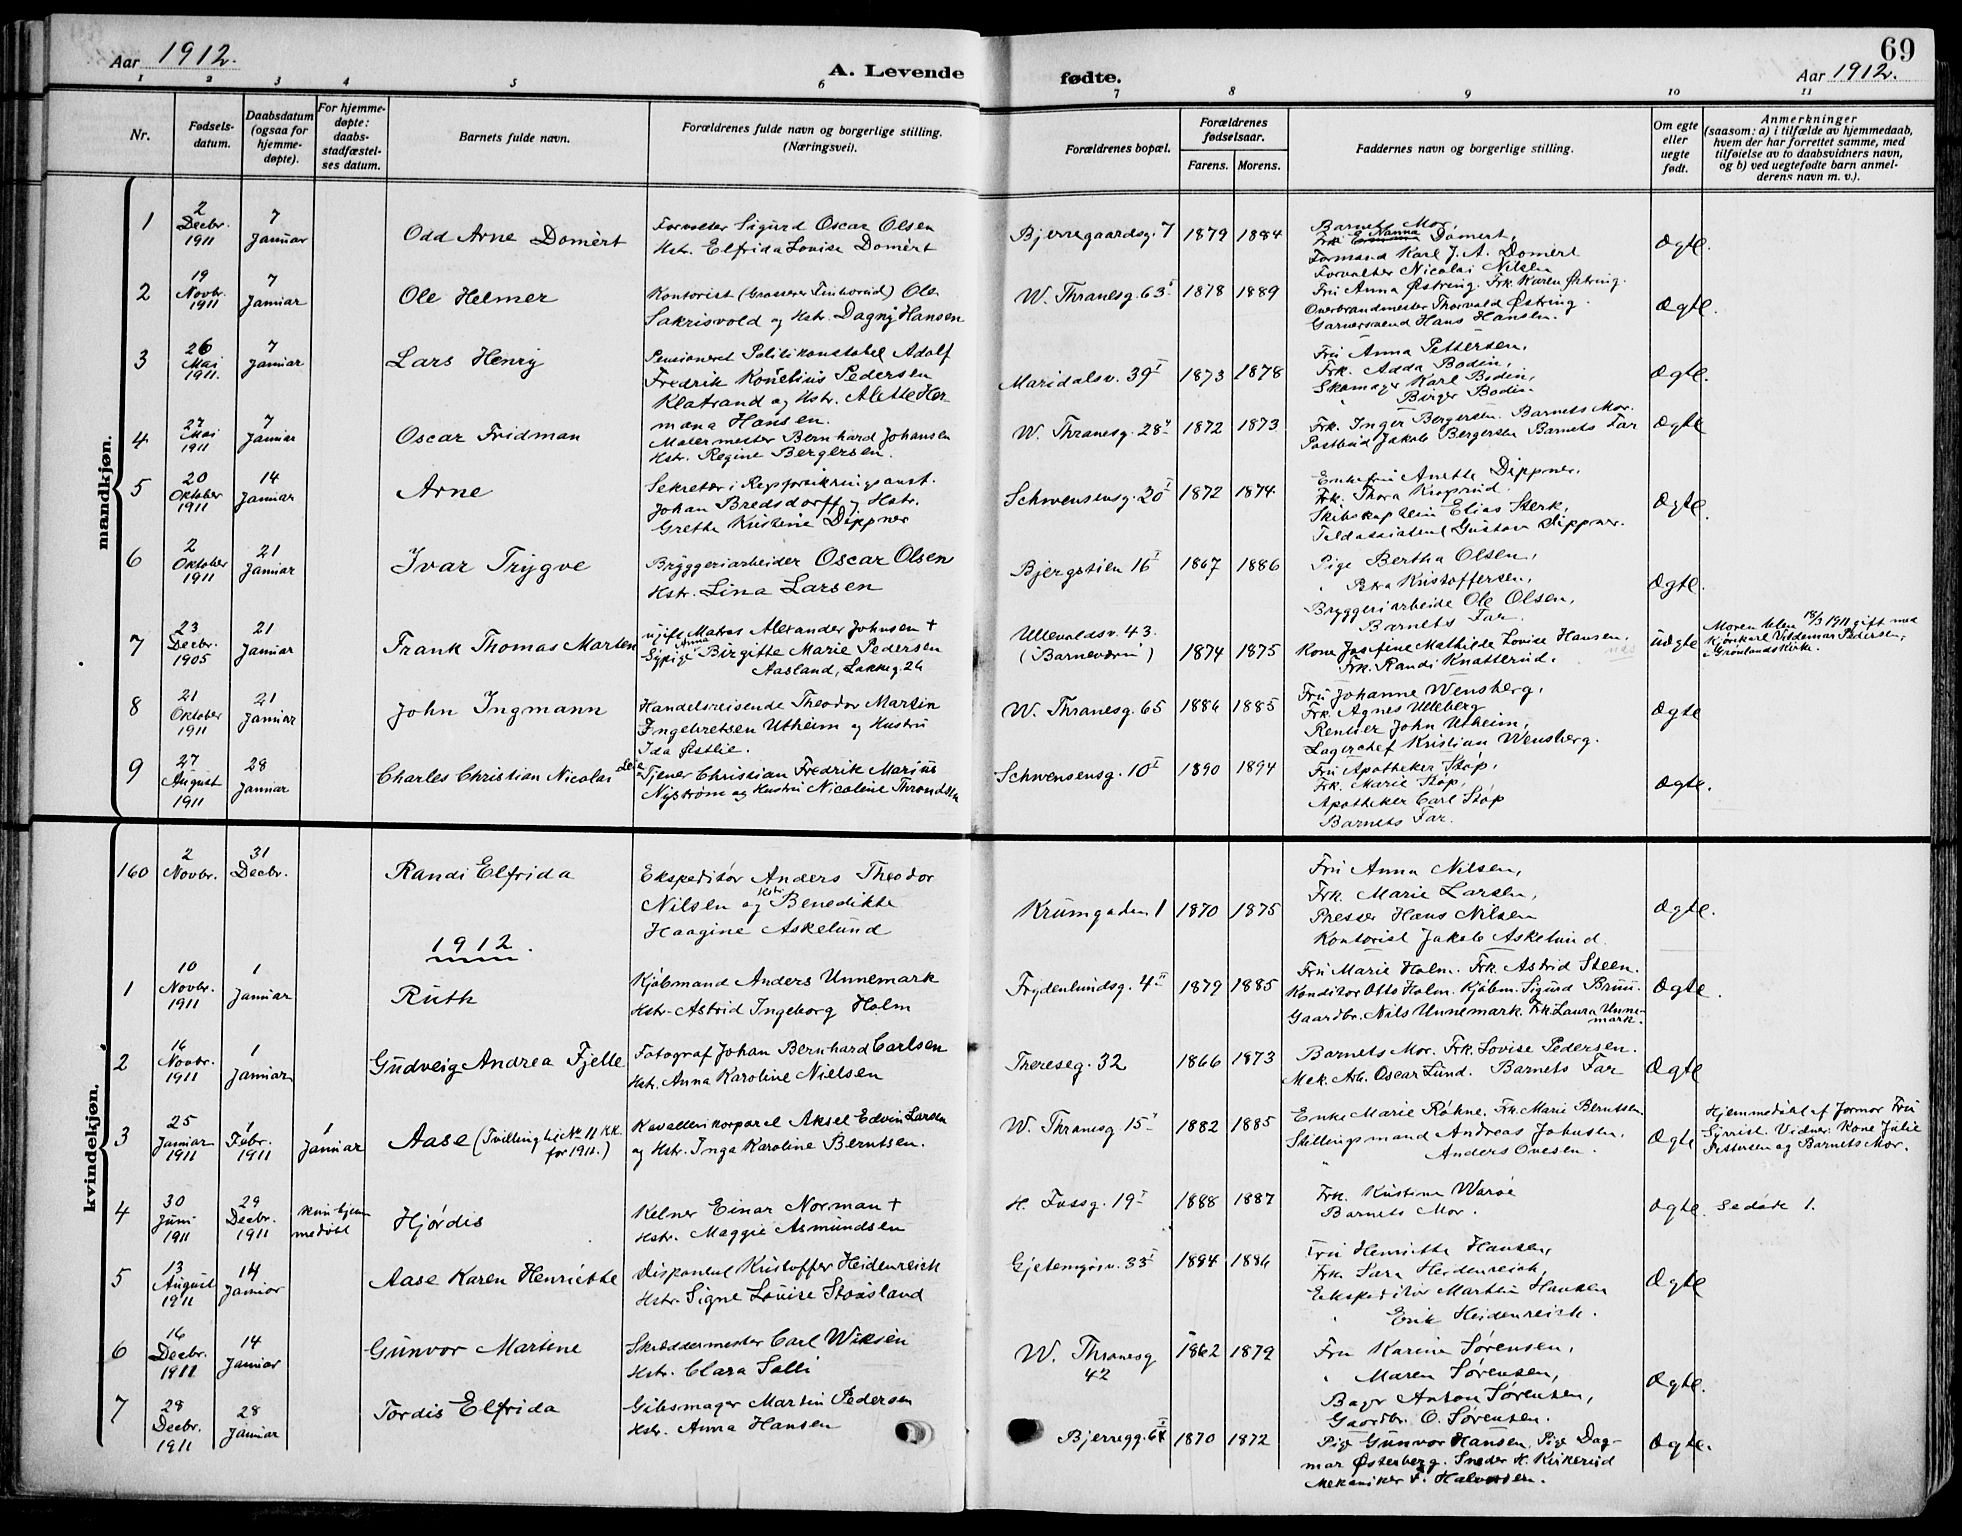 69
Aar 1912.
A. Levende fødte.
Aar 1912.
1 2 3 4 5 6 7 8 9 10 11
Nr.
Fødsels-
datum.
Daabsdatum
(ogsaa for
hjemme-
døpte).
For hjemme-
døpte:
daabs-
stadfæstel-
ses datum.
Barnets fulde navn.
Forældrenes fulde navn og borgerlige stilling.
(Næringsvei).
Forældrenes bopæl.
Forældrenes
fødselsaar.
Farens. Morens.
Faddernes navn og borgerlige stilling.
Om egte
eller
uegte
født.
Anmerkninger
(saasom: a) i tilfælde av hjemmedaab,
hvem der har forrettet samme, med
tilføielse av to daabsvidners navn,
og b) ved uegtefødte barn anmel-
derens navn m. v.).
mandkjøn.
1
2
Decbr.
1911
7
Januar
Odd Arne Domért
Forvalter Sigurd Oscar Olsen
Hst. Elfrida Lovise Domért
Bjerregaardsg. 7
1879 1884
Barnets Mor.
Frk. Nanna Domert,
Formand Karl J. A. Domert
Forvalter Nicolai Nilsen
Ægte.
2
19
Novbr.
1911
7
Januar
Ole Helmer
Kontorist (Grosserer) Ole
Sakrisvold og Hst. Dagny Hansen
W. Thranesg. 63 I
1878 1889
Fru Anna Østring. Frk. Karen Østring.
Overbrandmester Thorvald Østring.
Garversvend Hans Hansen.
Ægte.
3
26
Mai
1911.
7
Januar
Lars Henry
Pensioneret Politikonstabel Adolf
Fredrik Kornelius Pedersen
Klatrand og Hst. Alette Her-
mana Hansen.
Maridalsv. 39 I
1873 1878
Fru Anna Pettersen,
Frk. Adda Bodin,
Skomager Karl Bodin,
" Birger Bodin
Ægte.
4
27
Mai
1911
7
Januar
Oscar Fridman
Malermester Bernhard Johansen
Hst. Regine Bergersen.
W. Thranesg. 28 II
1872 1873
Frk. Inger Bergersen. Barnets Mor.
Postbud Jakob Bergersen Barnets Far
Ægte
5
20
Oktober
1911
14
Januar
Arne
Sekretær i Rigsforsikringsanst.
Johan Bredsdorff og Hst.
Grethe Kristine Dippner
Schwensensg. 20 I
1872 1874
Enkefru Anette Dippner,
Frk. Thora
Skibskaptein Elias Sterk,
Toldassistent Gustav Dippner.
Ægte.
6
2
Oktober
1911
21
Januar
Ivar Trygve
Bryggeriarbeider Oscar Olsen
Hst. Lina Larsen
Bjergstien 16 I
1867 1886
Pige Bertha Olsen,
" Petra Kristoffersen,
Bryggeriarbeide Ole Olsen,
Barnets Far.
Ægte.
7
23
Decbr.
1905
21
Januar
Frank Thomas Marten
ugift Matros Alexander Johnsen +
Sypige Anna Birgitte Marie Pedersen
Aasland, Lakkeg. 26
Ullevoldsv. 43.
(Barneværn)
1874 1875
Kone Josefine Mathilde Lovise Hansen.
Frk. Randi Knatterud.
uægte
Moren blev 18/3 1911 gift med
Kjørekarl Valdemar Pedersen,
i Grønlands Kirke.
8
21
Oktober
1911
21
Januar
John Ingmann
Handelsreisende Theodor Martin
Ingebretsen Utheim og Hustru
Ida Østlie.
W. Thranesg. 65
1886 1885
Fru Johanne Wensberg,
Frk. Agnes Ulleberg
Rentier John Utheim,
Lagerchef Kristian Wensberg.
Ægte
9
27
August
1911
28
Januar
Charles Christian Nicolai
Tjener Christian Fredrik Marius
Nystrøm og Hustru Nicoline Throndsen
Schwensensg. 10 I
1890 1894
Fru Apotheker Støp,
Frk. Marie Støp,
Apotheker Carl Støp
Barnets Far.
Ægte.
kvindekjøn.
160
2
Novbr.
31
Decbr.
Randi Elfrida
Ekspeditør Anders Theodor
Nilsen og Hst. Benedikte
Haagine Askelund
Krumgaden 1
1870 1875
Fru Anna Nilsen,
Frk. Marie Larsen,
Presser Hans Nilsen
Kontorist Jakob Askelund.
Ægte.
1912.
1
10
Novbr.
1911
1
Januar
Ruth
Kjøbmand Anders Unnemark
Hst. Astrid Ingeborg Holm
Frydenlundsg. 4 II
1879 1885
Fru Marie Holm. Frk. Astrid Steen.
Konditor Otto Holm. Kjøbm. Sigurd Bruu.
Gaardbr. Nils Unnemark. Frk. Laura Unne-
mark.
Ægte.
2
16
Novbr.
1911
1
Januar
Gudveig Andrea Fjelle
Fotograf Johan Bernhard Carlsen
Hst. Anna Karoline Nielsen
Thereseg. 32
1866 1873
Barnets Mor. Frk. Lovise Pedersen.
Mek. Arb. Oscar Lund. Barnets Far
Ægte
3
25
Januar
1911
1
Febr.
1911
1
Januar
Aase (Tvilling til No 11 K.K.
for 1911.)
Kavallerikorporal Aksel Edvin Larsen
og Hst. Inga Karoline Berntsen.
W. Thranesg 15 I
1882 1885
Enke Marie Røhne. Frk. Marie Berntsen
Stillingsmand Andreas Johnsen.
" Anders Ovesen.
Ægte
Hjemmedøbt af Jormor Fru
Syrrist. Vidner: Kone Julie
Pettersen og Barnets Mor.
4
30
Juni
1911
29
Decbr.
1911
kun hjem
medøbt
Hjørdis
Kelner Einar Norman +
Hst. Maggie Asmundsen
H. Fossg. 19 I
1888 1887
Frk. Kristine Warøe
Barnets Mor.
Ægte.
Se døde 1.
5
13
August
1911
14
Januar
Aase Karen Henriette
Disponent Kristoffer Heidenreich
Hst. Signe Louise Staasland
Gjetemyrsv. 33 I
1894 1886
Fru Henriette Hansen,
Frk. Sara Heidenreich,
Ekspeditør Martin Hansen
" Erik Heidenreich.
Ægte
6
16
Decbr.
1911
14
Januar
Gunvor Martine
Skræddermester Carl Wiksén
Hst. Clara Solli
W. Thranesg
42
1862 1879
Fru Karine Sørensen,
" Maren Sørensen,
Bager Anton Sørensen,
Gaardbr. O. Sørensen.
Ægte.
7
28
Decbr.
1911
28
Januar
Tordis Elfrida
Gibsmager Martin Pedersen
Hst. Anna Hansen
Bjerregg. 64 I
1870 1872
Pige Gunvor Hansen, Pige Dag-
mar Østerberg. Sneder H. Kirkerud
Mekaniker F. Halvorsen.
Ægte.